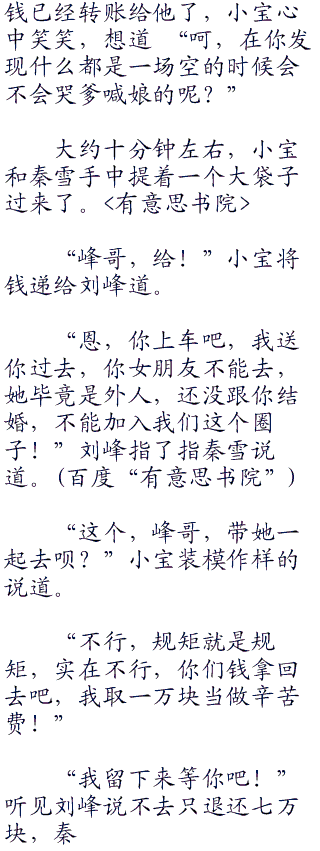 钱已经转账给他了，小宝心
中笑笑，想道　“呵，在你发
现什么都是一场空的时候会
不会哭爹喊娘的呢？”
大约十分钟左右，小宝
和秦雪手中提着一个大袋子
过来了。<有意思书院>
“峰哥，给！”小宝将
钱递给刘峰道。
“恩，你上车吧，我送
你过去，你女朋友不能去，
她毕竟是外人，还没跟你结
婚，不能加入我们这个圈
子！”刘峰指了指秦雪说
道。(百度“有意思书院”)
“这个，峰哥，带她一
起去呗？”小宝装模作样的
说道。
“不行，规矩就是规
矩，实在不行，你们钱拿回
去吧，我取一万块当做辛苦
费！”
“我留下来等你吧！”
听见刘峰说不去只退还七万
块，秦